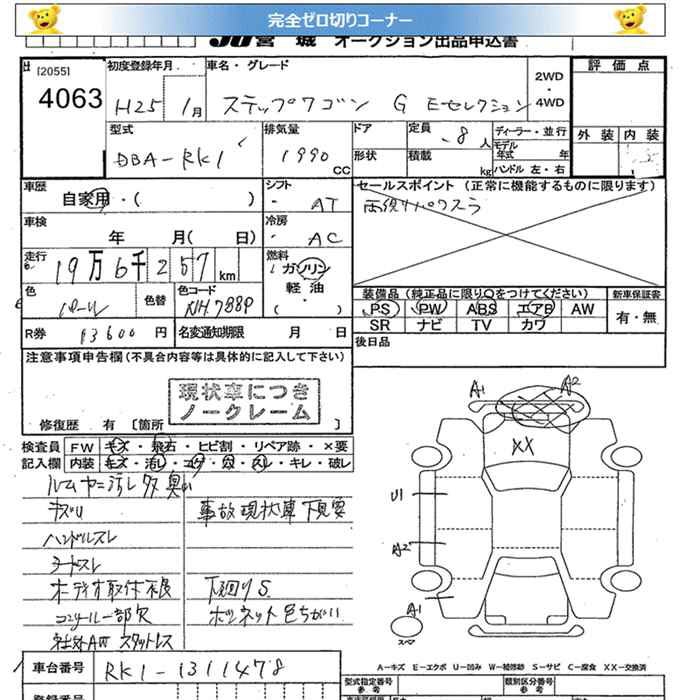 完全ゼロ切りコーナー
JU宮城 オークション出品申込書
[2055]
4063
初度登録年月
H25 1月
車名・グレード
ステップワゴン G Eセレクション
2WD
・
4WD
評価点
外装 内装
型式
DBA-RK1
排気量
1990 CC
ドア
形状
定員
8人
積載
kg
ディーラー・並行
モデル
年式 年
ハンドル 左・右
車歴
自家用・( )
シフト
AT
セールスポイント (正常に機能するものに限ります)
両側リパワスラ
車検
年 月( 日)
冷房
AC
走行
19万6千257km
燃料
ガソリン
軽油
( )
色
パール
色替
色コード
NH788P
装備品(純正品に限り○をつけてください)
PS PW ABS エアB AW
SR ナビ TV カワ
新車保証書
有・無
R券
13600円
名変通知期限 月 日
後日品
注意事項申告欄(不具合内容等は具体的に記入して下さい)
現状車につき
ノークレーム
修復歴 有 [箇所 ]
検査員 FW キズ・飛石・ヒビ割・リペア跡・×要
記入欄 内装 キズ・汚レ・コゲ・穴・スレ・キレ・破レ
ルームヤニ汚レ多 臭い
キズU 事故現状車 下見要
ハンドルスレ
オーディオ取付不良 下廻りS
コンソール一部欠 ボンネット色ちがい
社外AW スタットレス
A1 A2
XX
U1
A2
A1
スペア
A-キズ E-エクボ U-凹み W-補修跡 S-サビ C-腐食 XX-交換済
車台番号 RK1-1311478
型式指定番号
参考
類別区分番号
参考
登録番号